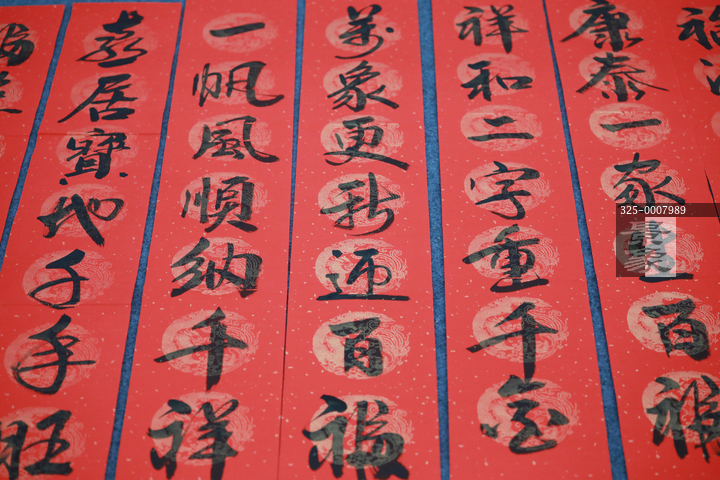 福
康泰一家
百福
祥和二字重千金
萬象更新迎百福
一帆風順納千祥
喜居寶地千年旺
325-0007989